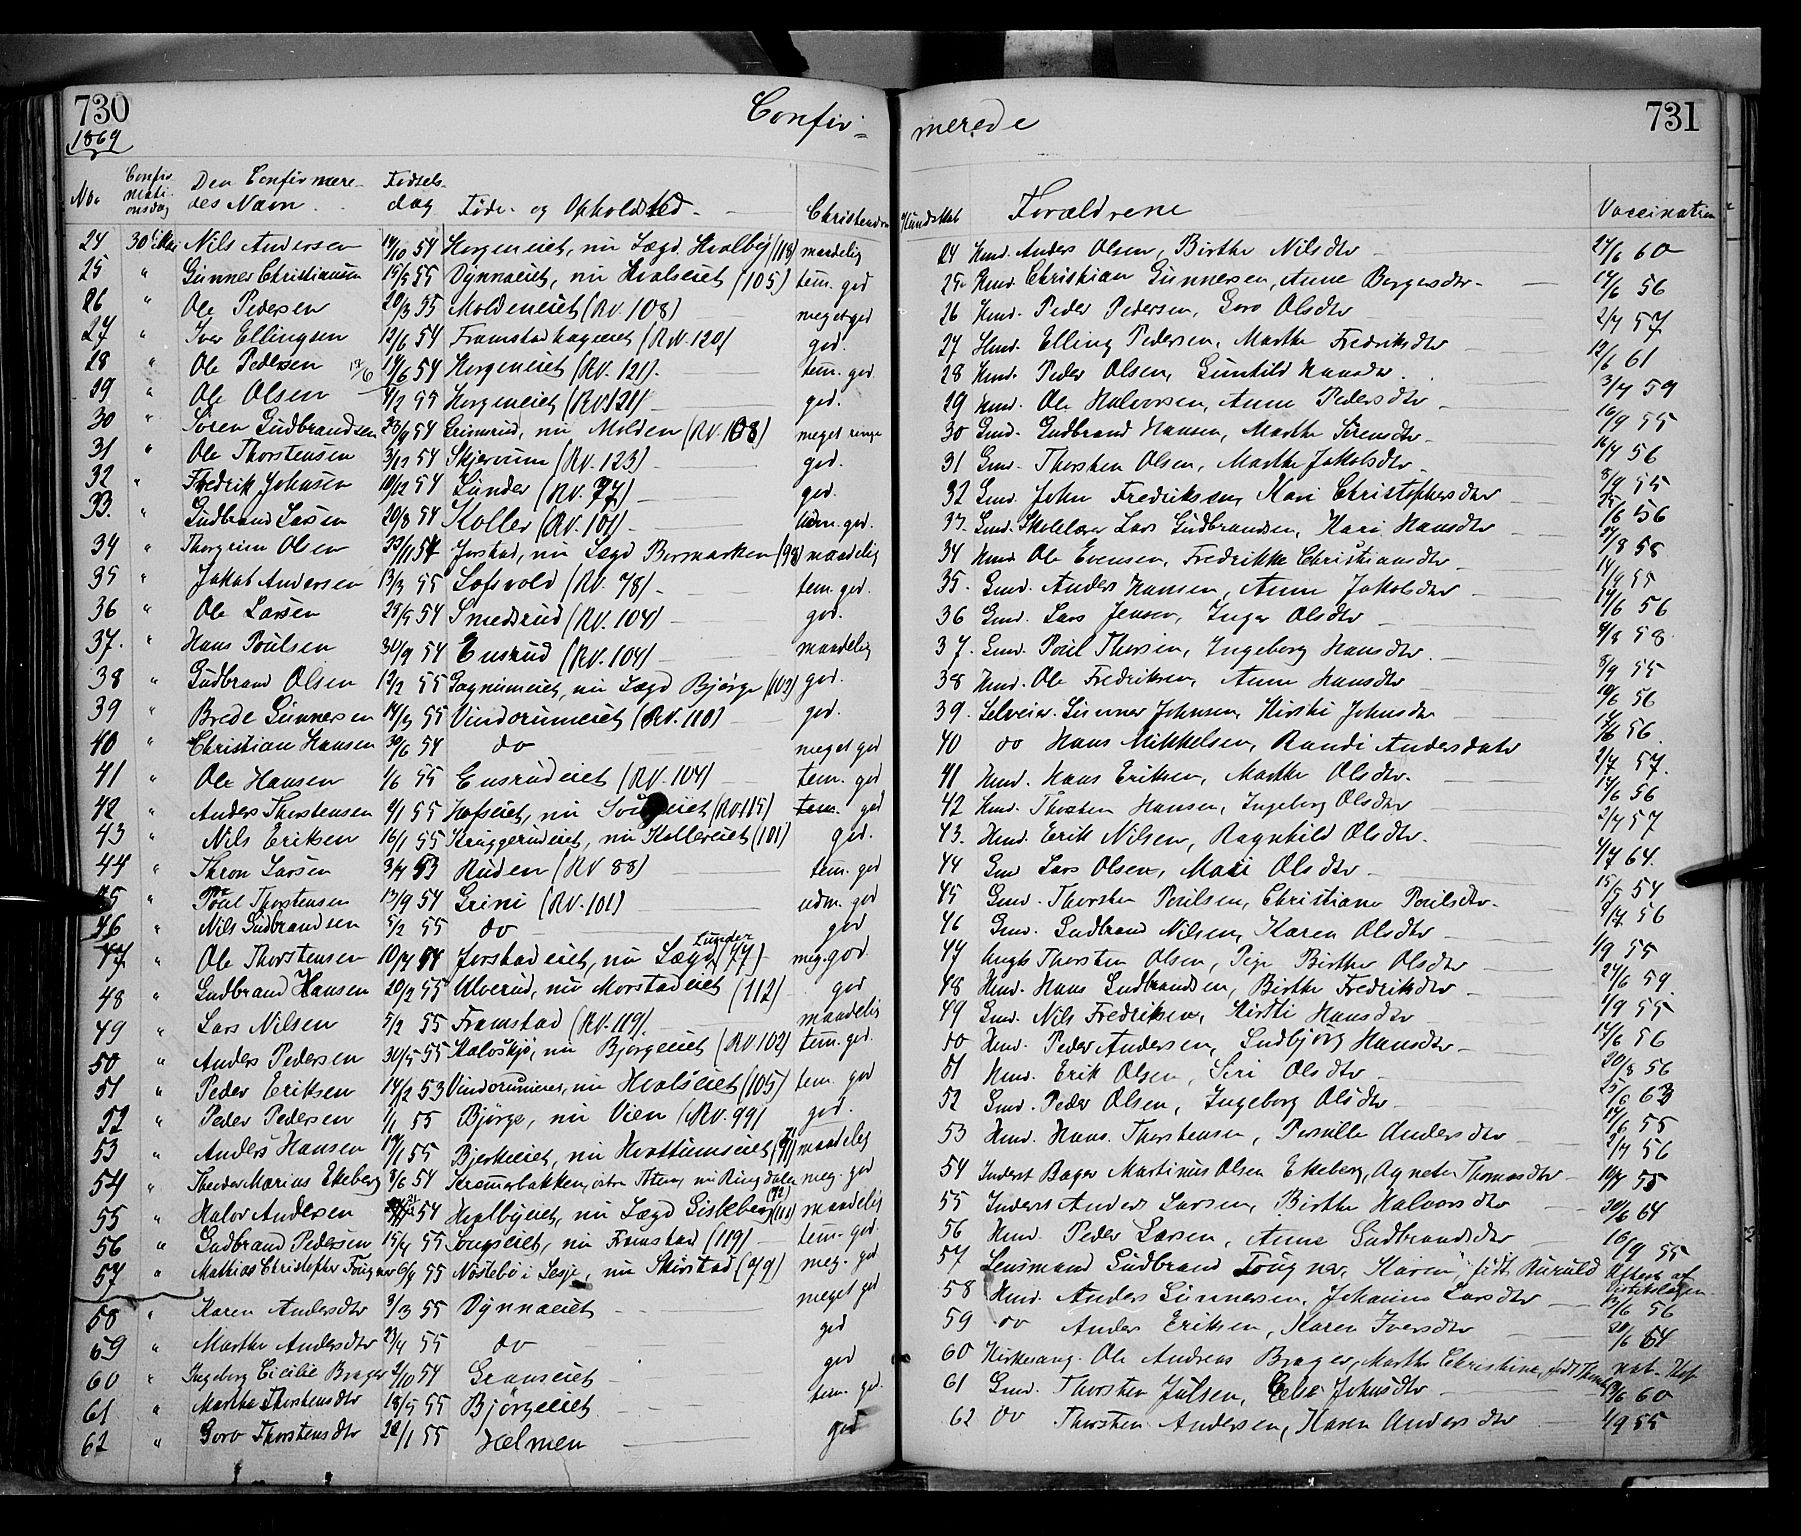 730
Confir=
1869
No. Confirmationsdag Den Confirmeredes Navn Fødselsdag Føde- og Opholdsted Christendom
24 30 Mai Nils Andersen 17/10 54 Horgeneiet, nu Lægd Hvalbÿ (118) maadelig
25 " Gunner Christiansen 15/5 55 Dynnaeiet, nu Hvalseiet (105) tem. god
26 " Ole Pedersen 20/3 55 Moldeneiet (RV. 108) meget god
27 " Iver Ellingsen 12/6 54 Framstadhageneiet (RV. 120) god.
28 " Ole Pedersen 17/6 54 Horgeneiet (RV. 121) tem. god.
29 " Ole Olsen 4/2 55 Horgeneiet (RV 121) god.
30 " Søren Gudbrandsen 23/9 54 Grimsrud, nu Molden (RV. 108) meget ringe
31 " Ole Thorstensen 3/12 54 Skjervum (RV. 123) god.
32 " Fredrik Johnsen 10/12 54 Lunder (RV. 77) god.
33. " Gudbrand Larsen 20/8 54 Koller (RV. 101) udm. god.
34 " Thorgrim Olsen 22/11 54 Jorstad, nu Lægd Bermarken (98) maadelig
35 " Jakob Andersen 13/3 55 Lofsvold (RV. 78) tem. god.
36 " Ole Larsen 25/9 54 Smedsrud (RV. 104) god.
37. " Hans Poulsen 30/9 54 Ensrud (RV. 104) maadelig
38 " Gudbrand Olsen 12/2 55 Gagnumeiet, nu Lægd Bjørge (102) god.
39 " Brede Gunnersen 14/3 55 Vindorumeiet (RV. 110) god.
40 " Christian Hansen 30/6 54 do meget god
41 " Ole Hansen 1/6 55 Ensrudeiet (RV. 104) tem. god
42 " Anders Thorstensen 9/1 55 Hofseiet, nu (RV. 115) tem. god
43 " Nils Eriksen 16/1 55 Skuggerudeiet, nu Kollereiet (101) god.
44 " Thron Larsen 3/4 53 Ruden (RV 88) tem. god
45 " Poul Thorstensen 13/9 54 Grini (RV. 101) udm. god
46 " Nils Gudbrandsen 5/2 55 do god
47 " Ole Thorstensen 10/4 54 Jorstadeiet, nu Lægd Lunder (77) meg. god.
48 " Gudbrand Hansen 20/2 55 Ulverud, nu Morstadeiet (112) god
49 " Lars Nilsen 5/2 55 Framstad (RV. 119) maadelig
50 " Anders Pedersen 30/5 55 Kaloskjø, nu Bjørgeeiet (RV. 102) tem. god.
51 " Peder Eriksen 14/2 53 Vindorumeiet, nu Hvalseiet (105) tem. god
52 " Peder Pedersen 1/1 55 Bjørge, nu Vien (RV. 99) god.
53 " Anders Hansen 17/1 55 Bjerkeeiet, nu Hvattumseiet (91) maadelig
54 " Theodor Marius Ekeberg 3/6 54 Strømsbakken, østre Toten, nu Ringdalen (92) meg. god
55 " Halvor Andersen 54 Hvalbyeiet, nu Lægd Gisleberg (111) maadelig
56 " Gudbrand Pedersen 15/4 55 Lougseiet, nu Framstad (119) tem. god.
57 " Mathias Christopher Tougner 6/4 55 Nøstebø i Lesje, nu Skirstad meg. god
58 " Karen Andersdtr 3/3 55 Dynnaeiet meget god
59 " Marthe Andersdtr 23/4 55 do god
60 " Ingeborg Cicilie Brager 2/10 54 Granseiet god
61 " Marthe Thorstensdtr 18/5 55 Bjørgeeiet tem. god
62 " Goro Thorstensdtr 22/1 55 Helmen god
merede
731
Kundskab Forældrene Vaccination
24 Hmd. Anders Olsen, Birthe Nilsdtr 27/6 60
25. Hmd. Christian Gunnersen, Anne Borgersdtr. 17/6 56
26 Hmd. Peder Pedersen, Goro Olsdtr 2/7 57
27 Hmd. Elling Pedersen, Marthe Fredriksdtr 12/6 61
28 Hmd. Peder Olsen, Gunhild Hansdtr. 3/7 59
29 Hmd. Ole Halvorsen, Anne Pedersdtr 16/9 55
30 Gmd. Gudbrand Hansen, Marthe Sørensdtr 16/7 56
31 Gmd. Thorsten Olsen, Marthe Jakobsdtr 8/9 55
32 Gmd. John Fredriksen, Kari Christophersdtr 25/6 56
33. Gmd. Skolelærer Lars Gudbrandsen, Kari Hansdtr 27/8 58
34 Hmd Ole Evensen, Fredrikke Christiansdtr 14/9 55
35. Gmd. Anders Hansen, Anne Jakobsdtr 17/6 56
36 Gmd. Lars Jensen, Inger Olsdtr 9/8 58
37. Gmd. Poul Thorsen, Ingeborg Hansdtr. 8/9 55
38 Hmd. Ole Fredriksen, Anne Hansdtr 10/6 56
39. Selveier. Gunner Johnsen, Kirsti Johnsdtr 17/6 56.
40 do Hans Mikkelsen, Randi Andersdatr 2/7 57.
41 Hmd. Hans Eriksen, Marthe Olsdtr. 17/6 56
42 Hmd. Thorsten Hansen, Ingeborg Olsdtr 2/7 57
43. Hmd. Erik Nilsen, Ragnhild Olsdtr. 1/7 64.
44 Gmd Lars Olsen, Mari Olsdtr. 15/5 54
45 Gmd. Thorsten Poulsen, Christiane Poulsdtr. 9/7 56
46 Gmd. Gudbrand Nilsen, Karen Olsdtr 1/9 55
47 Ungk Thorsten Olsen, Pige Birthe Olsdtr 27/6 59.
48 Hmd. Hans Gudbrandsen, Birthe Fredriksdtr 1/9 55
49 Gmd. Nils Fredriksen, Kirsti Hansdtr 17/6 56
50 Hmd. Peder Andersen, Gudbjørg Hansdtr 20/8 56
51 Hmd. Erik Olsen, Siri Olsdtr 25/6 63
52 Gmd. Peder Olsen, Ingeborg Olsdtr 17/6 55
53 Hmd. Hans Thorstensen, Pernille Andersdtr 2/7 56
54 Inderst Bager Martinus Olsen Ekeberg, Agnete Thomasdtr 10/7 55
55 Inderst Anders Larsen, Birthe Halvorsdtr 30/6 64
56 Hmd. Peder Larsen, Anne Gudbrandsdtr 16/9 55
57 Lensmand Gudbrand Tougner, Karen, født Ruruld Attest af Distriktslægen
58 Hmd. Anders Gunnersen, Johanne Larsdtr 12/6 56
59 do Anders Eriksen, Karen Iversdtr 20/6 64
60 Kirkesang. Ole Andreas Brager, Marthe Christine, født nat. Kop
61 Gmd. Thorsten Julsen, Else Johnsdtr 19/6 60
62 do Thorsten Andersen, Karen Andersdtr 1/9 55